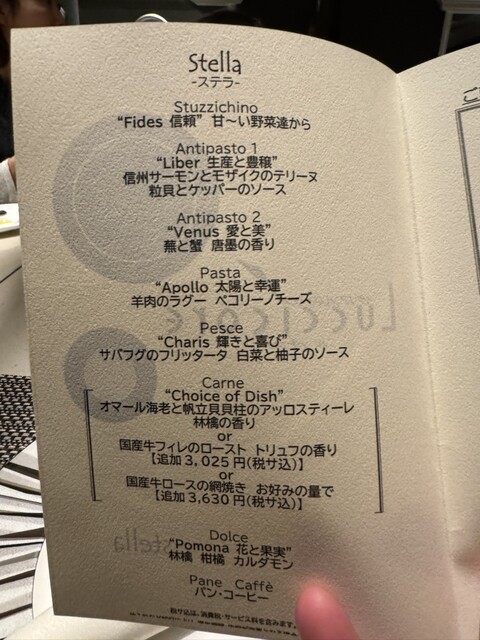 Stella
-ステラ-
Stuzzichino
"Fides 信頼" 甘〜い野菜達から
Antipasto 1
"Liber 生産と豊穣"
信州サーモンとモザイクのテリーヌ
粒貝とケッパーのソース
Antipasto 2
"Venus 愛と美"
蕪と蟹 唐墨の香り
Pasta
"Apollo 太陽と幸運"
羊肉のラグー ペコリーノチーズ
Pesce
"Charis 輝きと喜び"
サバフグのフリッタータ 白菜と柚子のソース
Carne
"Choice of Dish"
オマール海老と帆立貝貝柱のアッロスティーレ
林檎の香り
or
国産牛フィレのロースト トリュフの香り
【追加3,025円(税サ込)】
or
国産牛ロースの網焼き お好みの量で
【追加3,630円(税サ込)】
Dolce
"Pomona 花と果実"
林檎 柑橘 カルダモン
Pane Caffè
パン・コーヒー
税サ込は、消費税・サービス料を含みます。